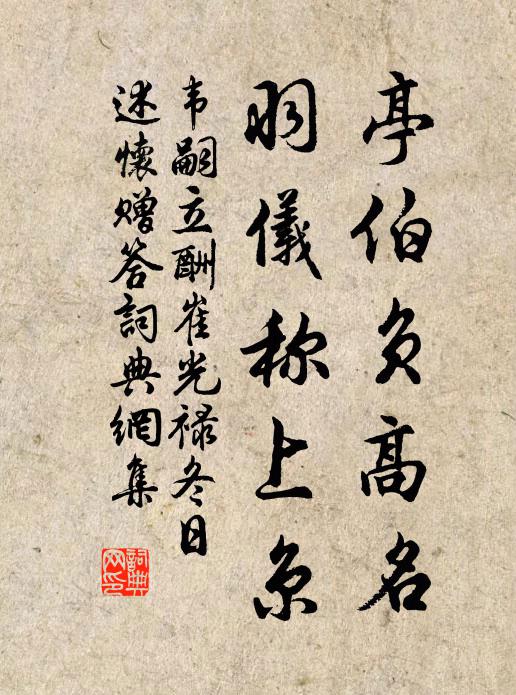 亭伯负高名
羽儀称上京
韦嗣立酬崔光禄冬日
述懷赠答詞典網集
詞典网印